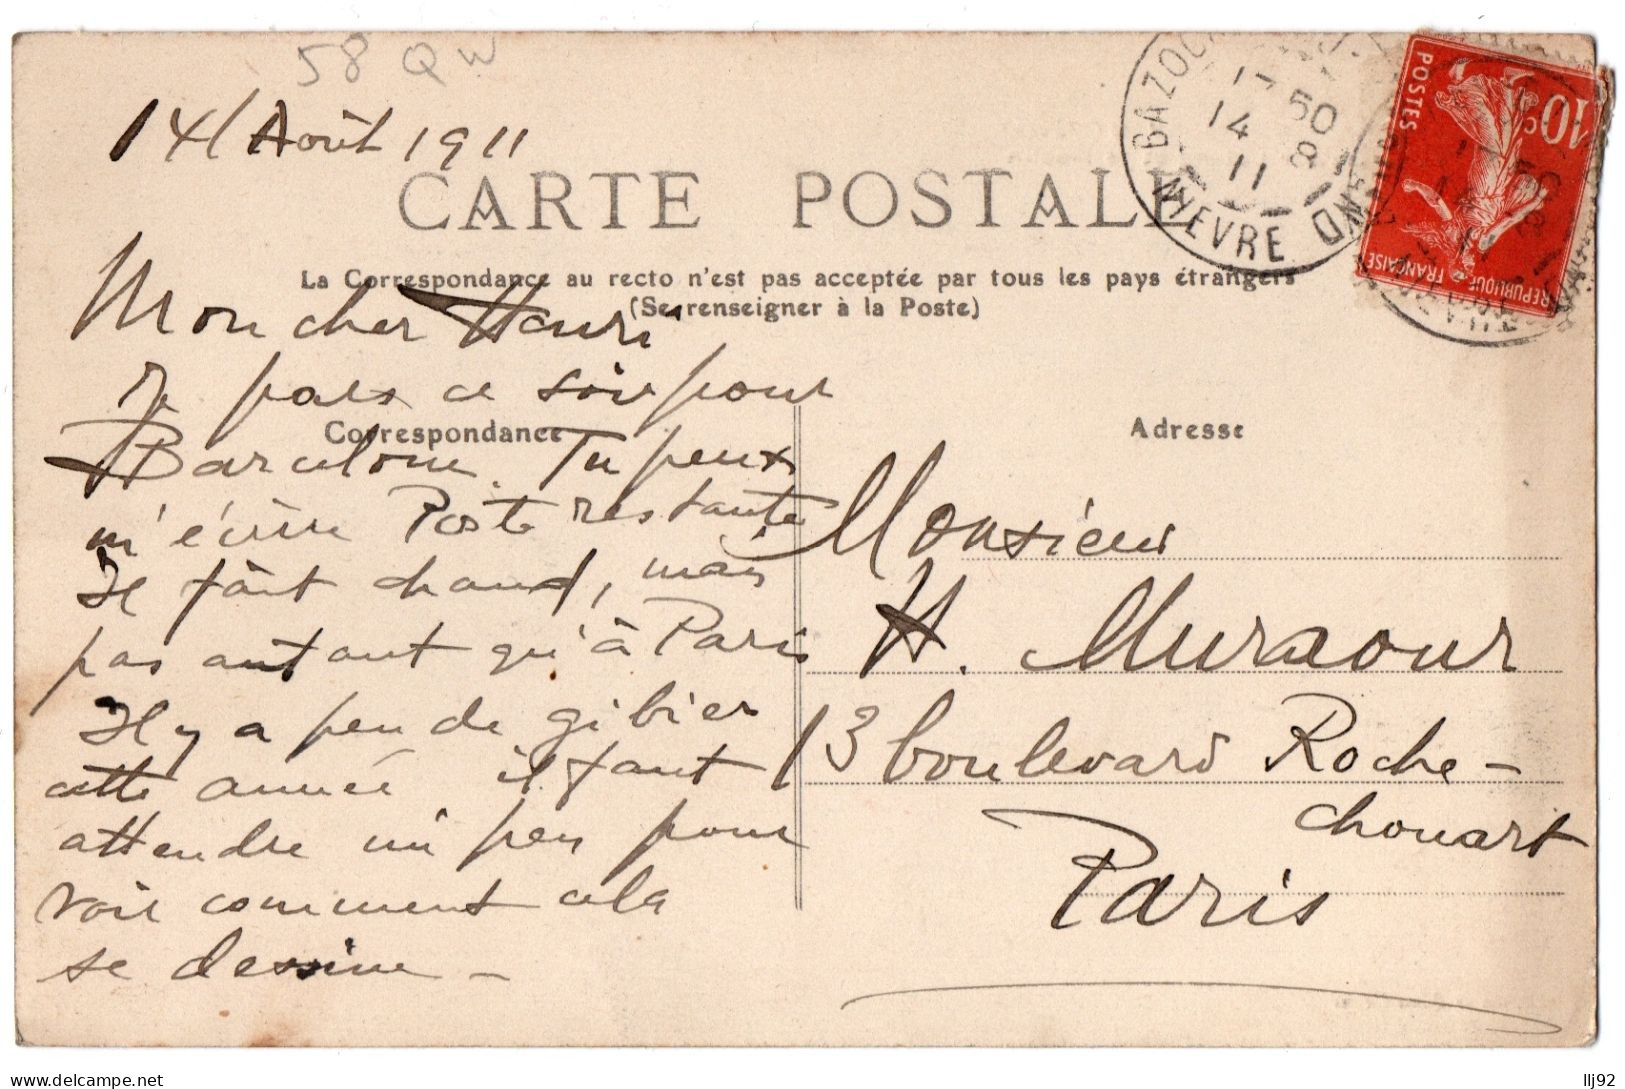 58 QW
14 Août 1911
CARTE POSTALE
La Correspondance au recto n'est pas acceptée par tous les pays étrangers
(Se renseigner à la Poste)
Mon cher Henri
Je pars ce soir pour
Correspondance
Barcelone. Tu peux
m'écrire Poste restante
Il fait chaud, mais
pas autant qu'à Paris
Il y a peu de gibier
cette année il faut
attendre un peu pour
voir comment cela
se dessine -
Adresse
Monsieur
H. Muraour
13 boulevard Roche-
chouart
Paris
14 50
11 8
NIEVRE
POSTES
10c
REPUBLIQUE FRANÇAISE
delcampe.net
llj92